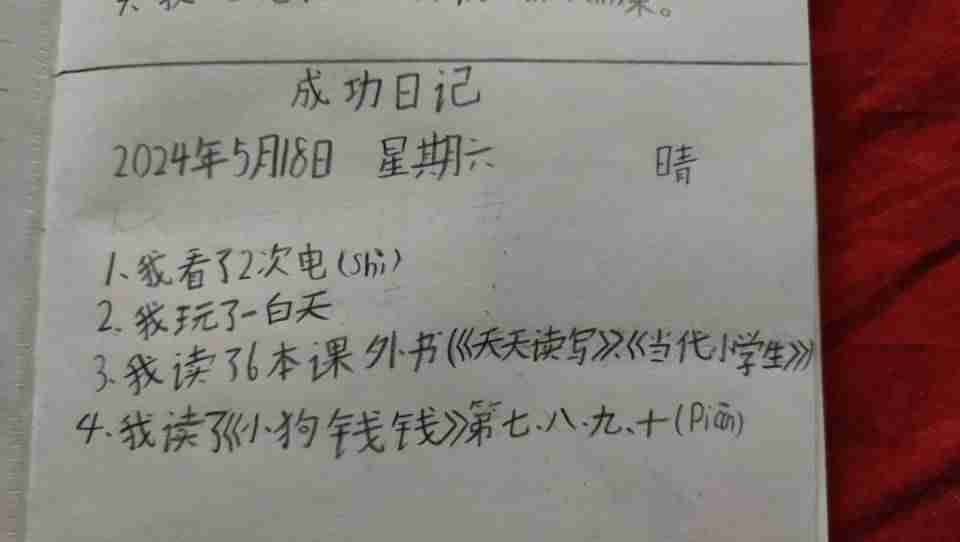 成功日记
2024年5月18日 星期六 晴
1、我看了2次电(shì)
2、我玩了一白天
3、我读了6本课外书(《天天读写》、《当代小学生》)
4、我读了《小狗钱钱》第七、八、九、十(Piān)